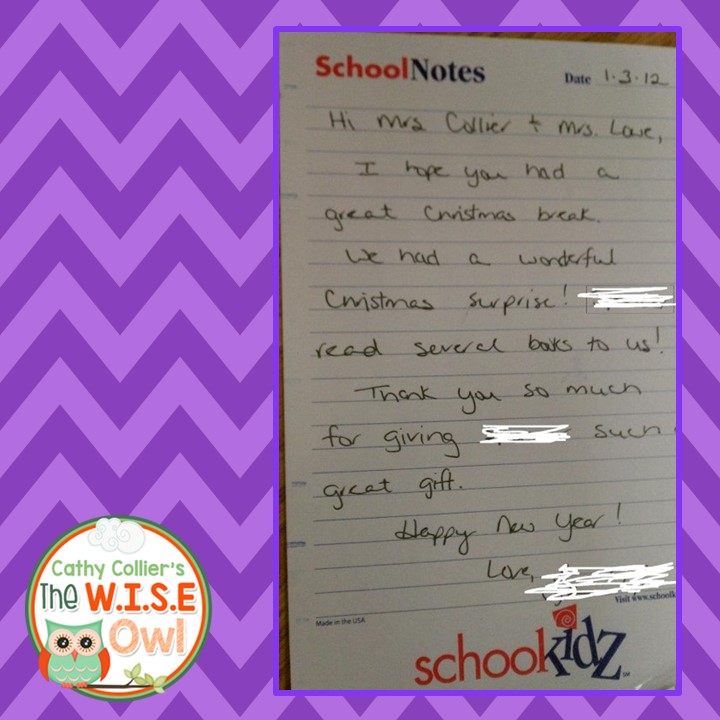 SchoolNotes
Date 1.3.12
Hi Mrs Collier + Mrs. Love,
I hope you had a
great Christmas break.
We had a wonderful
Christmas surprise!
read several books to us!
Thank you so much
for giving such
great gift.
Happy New Year!
Love,
Visit www.schoolk
Made in the USA
schoolkidz
SM
Cathy Collier's
The W.I.S.E
Owl